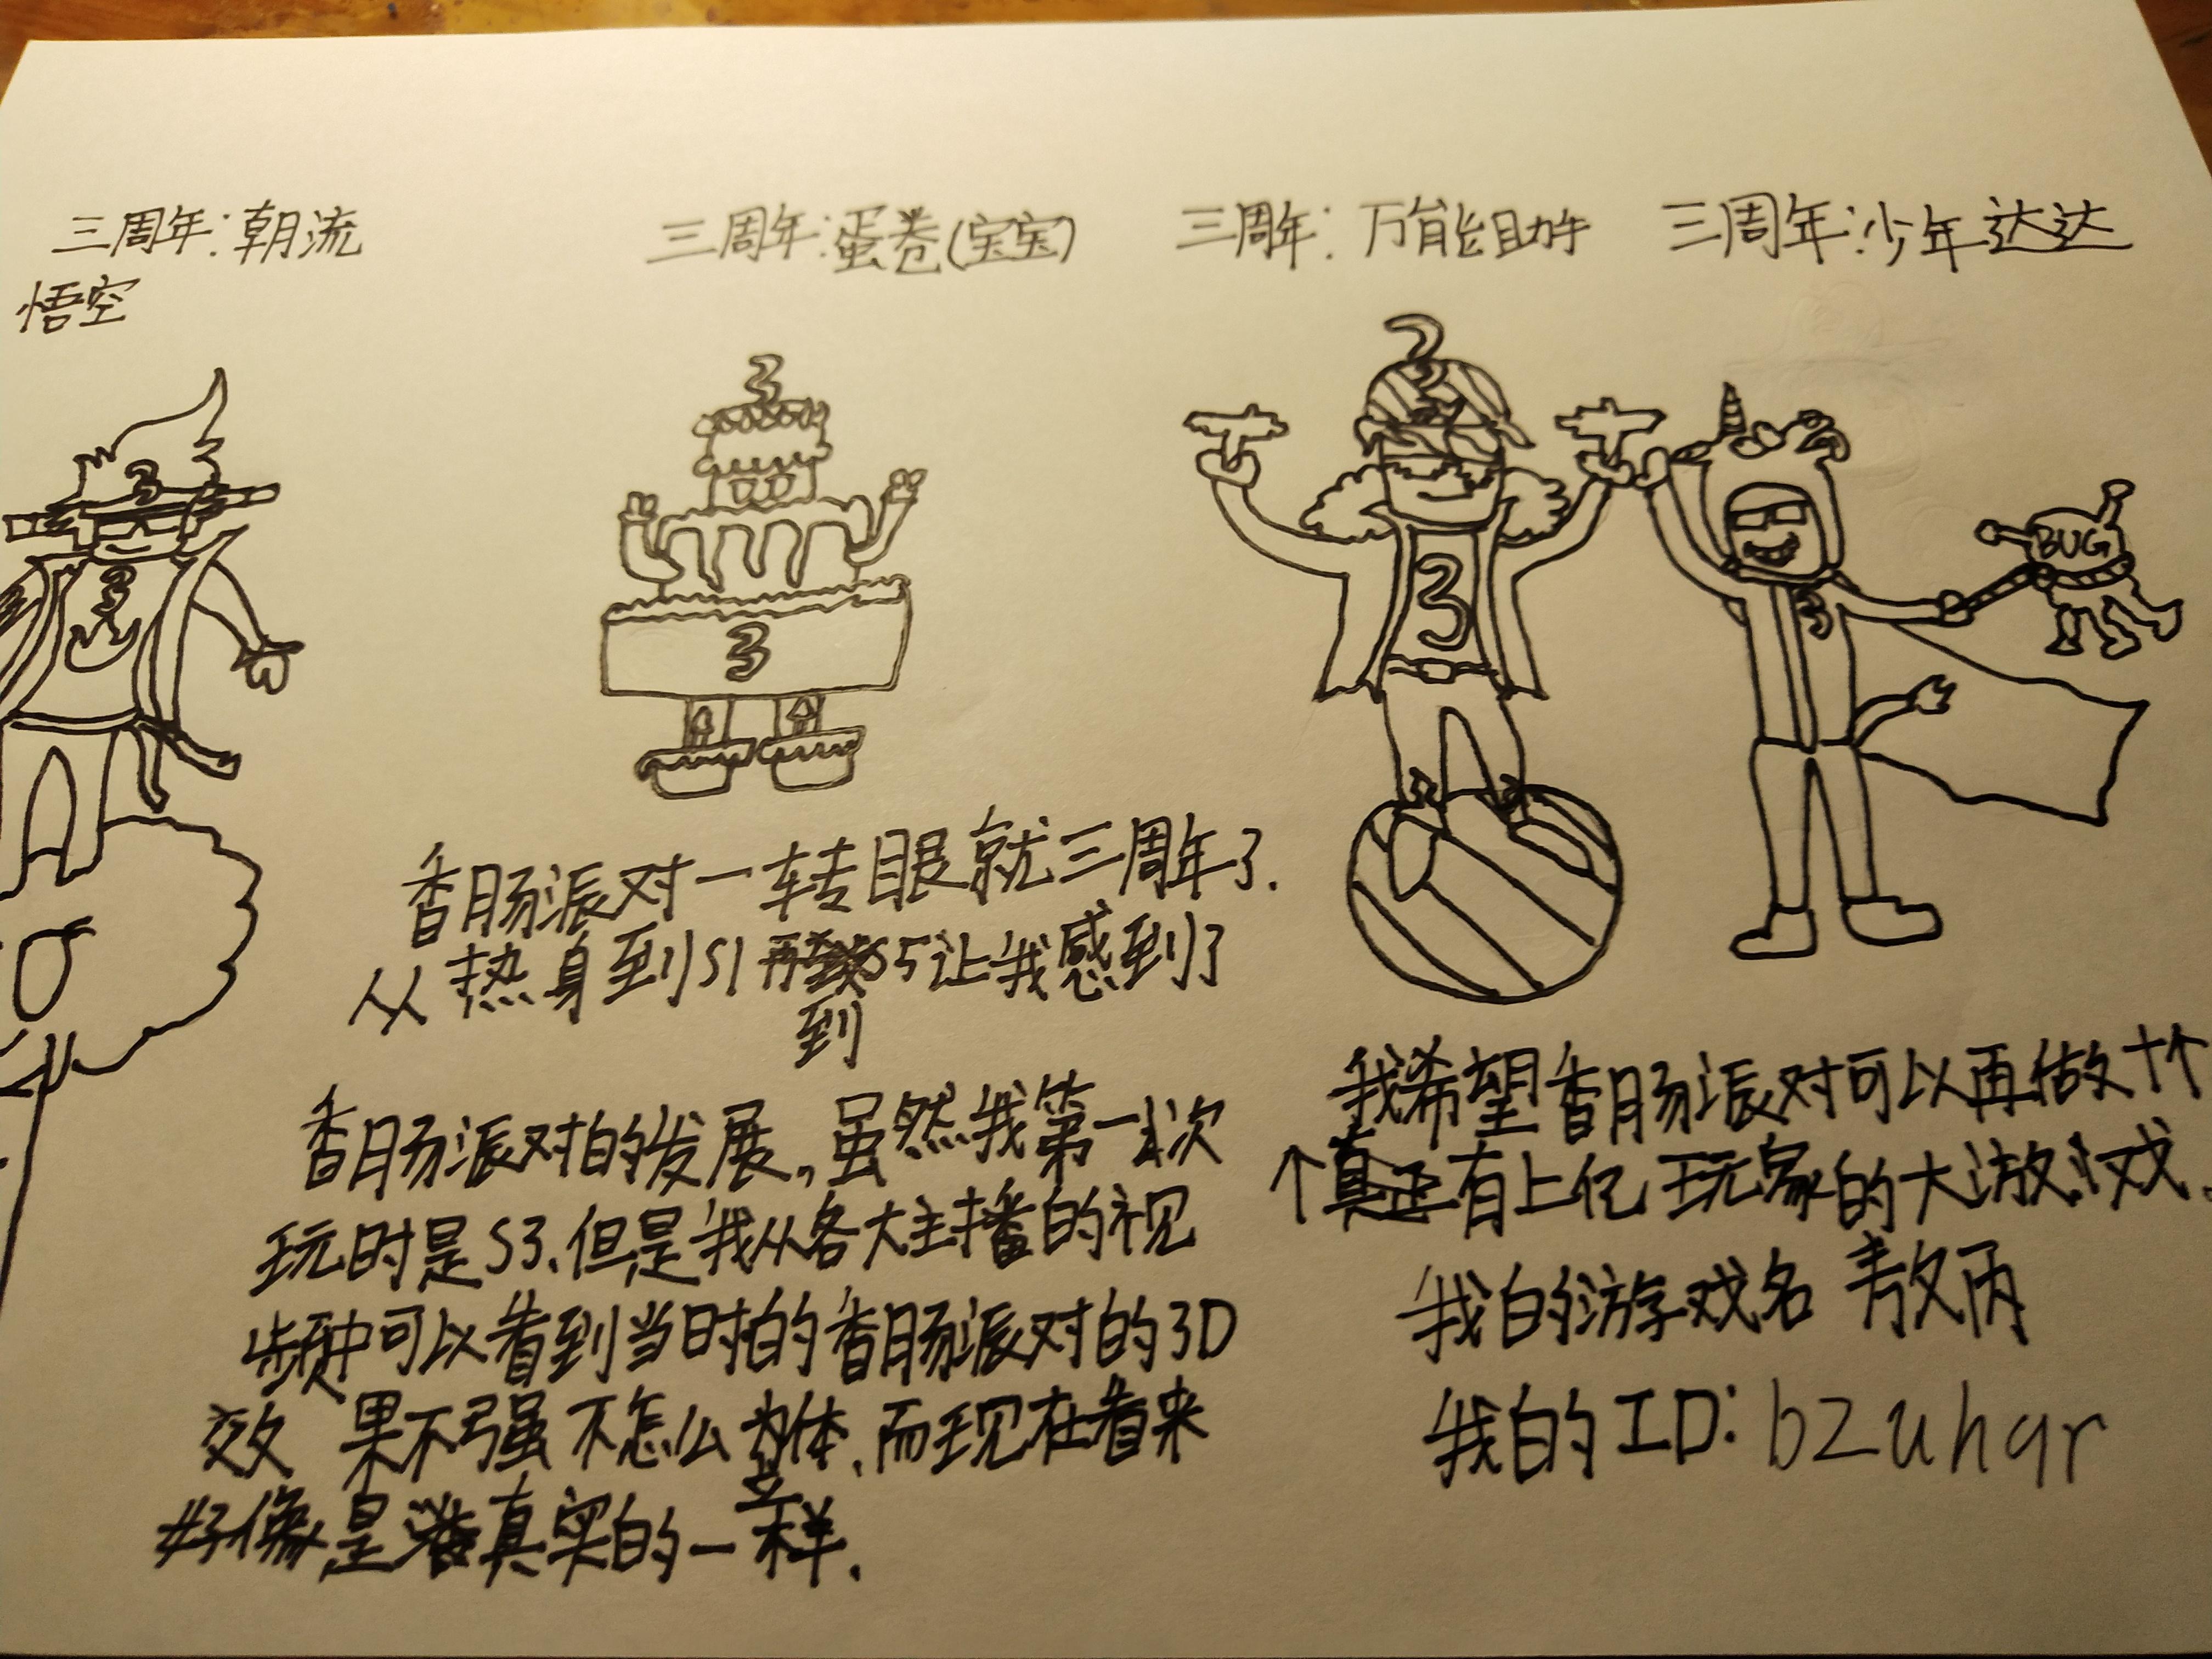 三周年:朝流
悟空
三周年:蛋卷(宝宝)
三周年:万能助手
三周年:少年达达
3
3
3
3
3
3
3
3
BUG
香肠派对一转眼就三周年了.
从热身到S1再到S5让我感到了
香肠派对的发展,虽然我第一次
玩时是S3,但是我从各大主播的视
频中可以看到当时的香肠派对的3D
效果不强不怎么立体,而现在看来
好像是真实的一样.
我希望香肠派对可以再做十个
个真正有上亿玩家的大游戏.
我的游戏名 敖丙
我的ID:bzuhqr